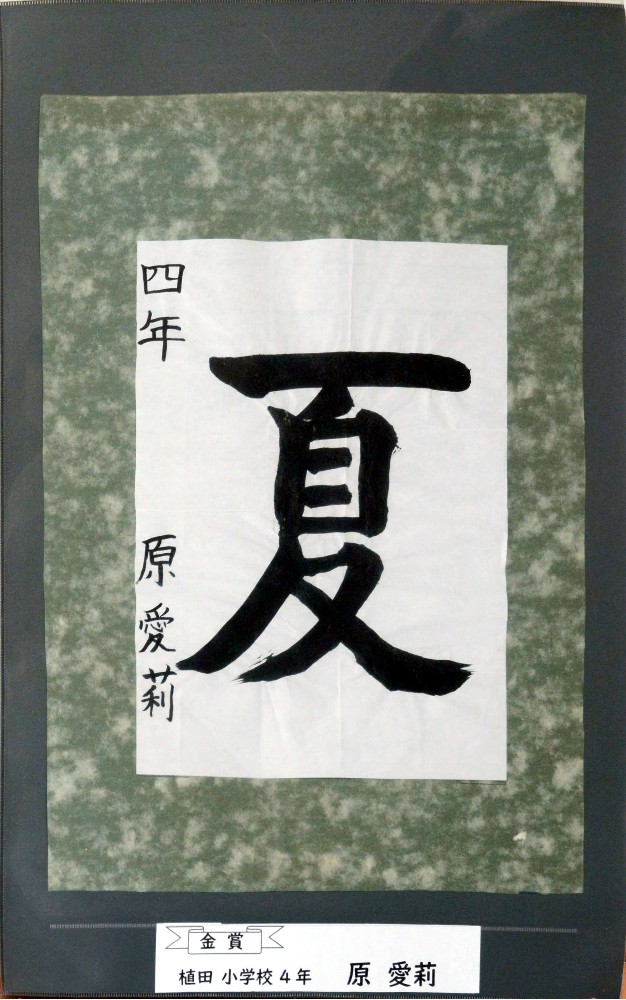 夏
四年 原愛莉
金賞
植田 小学校 4年 原 愛莉